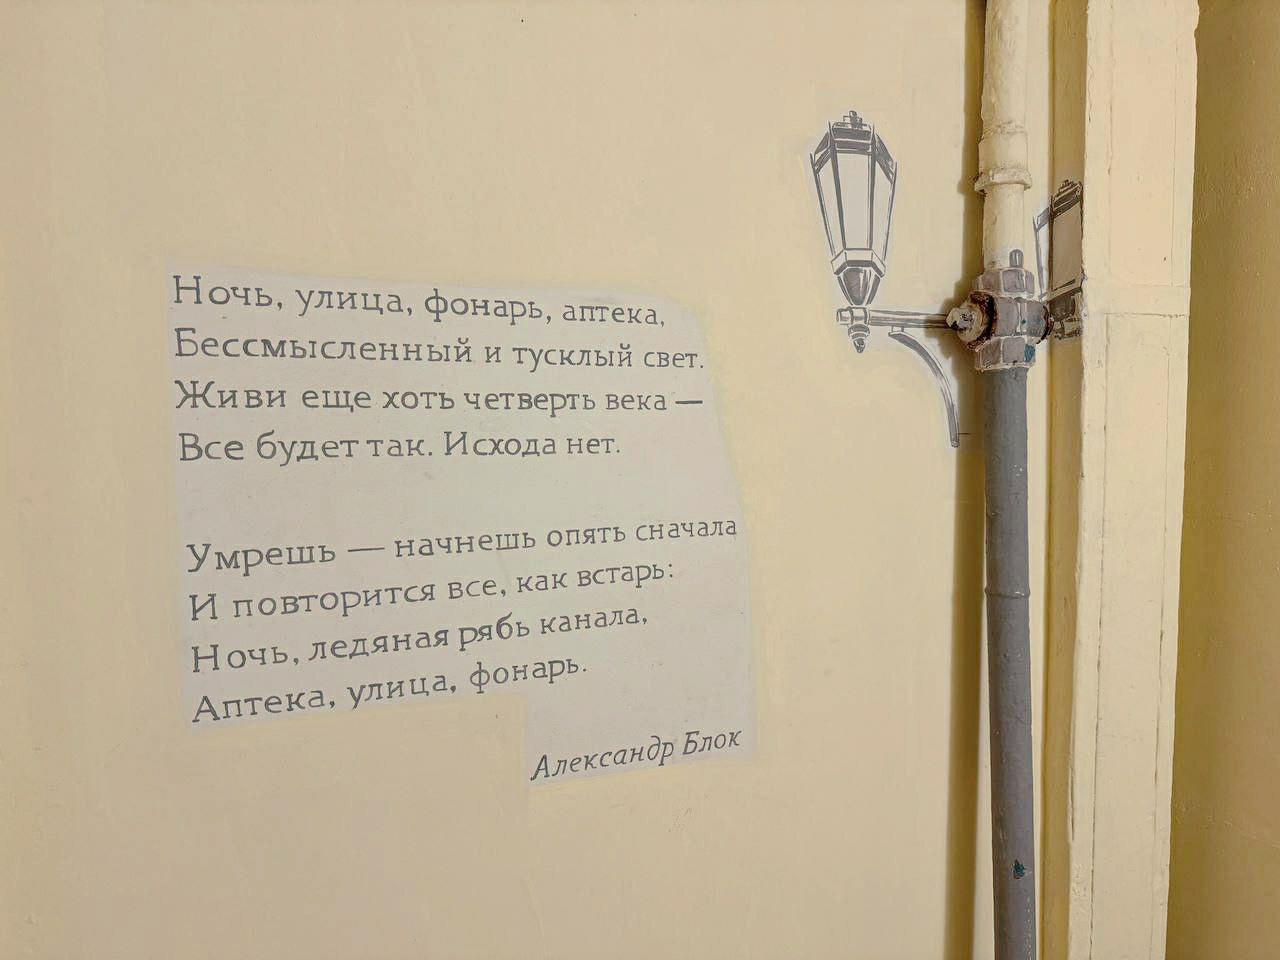 Ночь, улица, фонарь, аптека,
Бессмысленный и тусклый свет.
Живи еще хоть четверть века —
Все будет так. Исхода нет.
Умрешь — начнешь опять сначала
И повторится все, как встарь:
Ночь, ледяная рябь канала,
Аптека, улица, фонарь.
Александр Блок